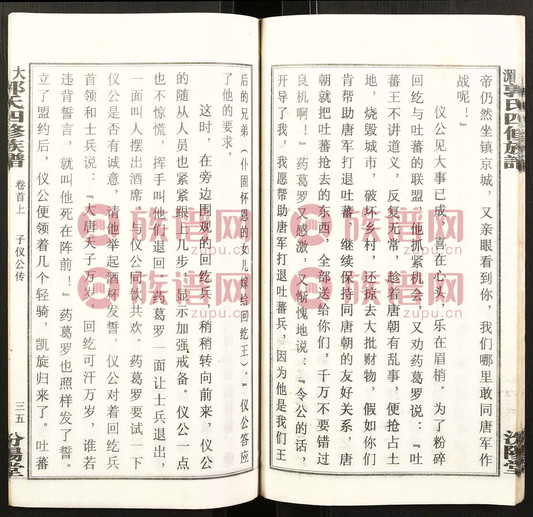 帝仍然坐镇京城，又亲眼看到你，我们哪里敢同唐军作
战呢！』
仪公见大事已成，喜在心头，乐在眉梢。为了粉碎
回纥与吐蕃的联盟，他抓紧机会，又劝药葛罗说：『吐
蕃王不讲道义，反复无常，趁着唐朝有乱事，便抢占土
地，烧毁城市，破坏乡村，还掠去大批财物，假如你们
帮助唐军打退吐蕃，继续保持同唐朝的友好关系，唐
朝就把吐蕃抢去的东西，全部送给你们，千万不要错过
良机啊！』药葛罗又感激，又惭愧地说：『令公的话，
开导了我，我愿帮助唐军打退吐蕃兵，因为他是我们王
后的兄弟（仆固怀恩的女儿嫁给回纥王）。』仪公答应
了他的要求。
这时，在旁边围观的回纥兵，稍稍转向前来，仪公
的随从人员也紧紧跟上几步，显示加强戒备。仪公一点
也不惊慌，挥手叫他们退回。药葛罗一面让士兵退出，
一面叫人摆出酒席，与仪公同饮共欢。药葛罗要试一下
仪公是否有诚意，请他举起酒杯发誓，仪公对着回纥兵
首领和士兵说：『大唐天子万岁，回纥可汗万岁，谁若
违背誓言，就叫他死在阵前！』药葛罗也照样发了誓。
立了盟约后，仪公便领着几个轻骑，凯旋归来了。吐蕃
郭氏四修族谱
汾阳堂
大郭氏四修族谱
卷首上
子仪公传
三五
汾阳堂
族谱网
族谱网
族谱网
族谱网
族谱网
族谱网